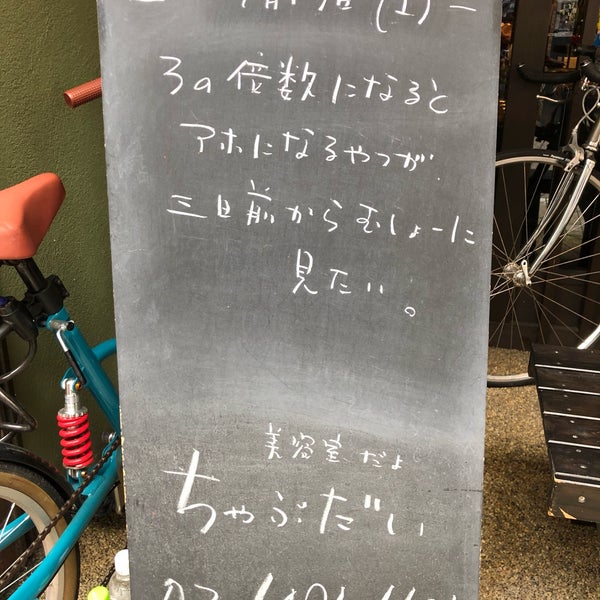 3の倍数になると
アホになるやつが
三日前からむしょーに
見たい。
美容室だよ
ちゃぶだい